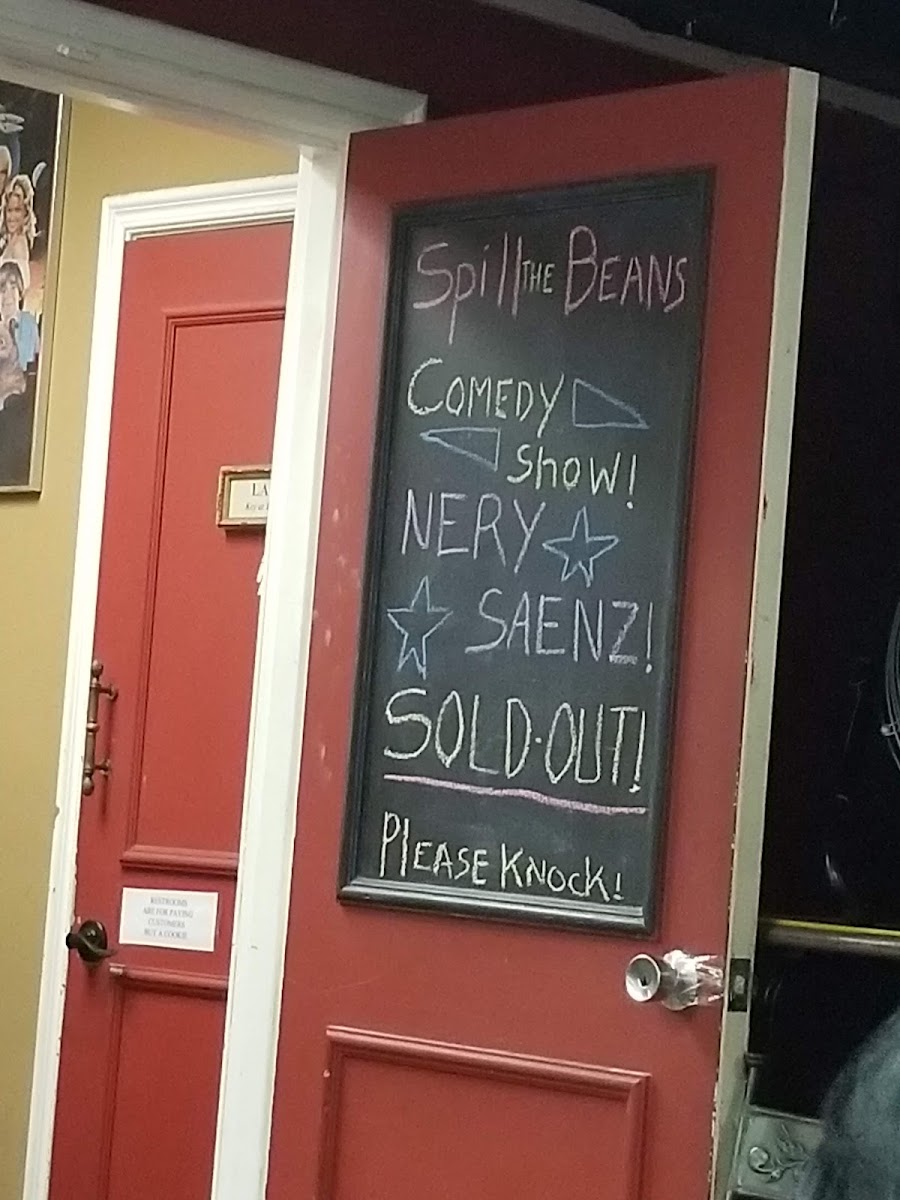 Spill THE BEANS
COMEDY
Show!
NERY
SAENZ!
SOLD·OUT!
PLEASE KNOCK!
LA
Key at
RESTROOMS
ARE FOR PAYING
CUSTOMERS
BUY A COOKIE